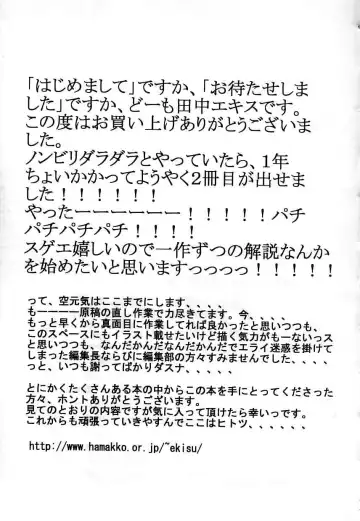 「はじめまして」ですか、「お待たせしま
した」ですか、どーも田中エキスです。
この度はお買い上げありがとうございま
した。
ノンビリダラダラとやっていたら、1年
ちょいかかってようやく2冊目が出せま
した！！！！！！
やったーーーーーー！！！！！パチ
パチパチパチ！！！！
スゲエ嬉しいので一作ずつの解説なんか
を始めたいと思いますっっっっ！！！！！
って、空元気はここまでにします、、、、
も―――――原稿の直し作業で力尽きてます。今、、、、
もっと早くから真面目に作業してれば良かったと思いつつも、
このスペースにもイラスト載せたいけど描く気力がもーないっス
と思いつつも、なんだかんだなんだかんだでエライ迷惑を掛けて
しまった編集長ならびに編集部の方々すみませんでした、、、、
っと、いつも謝ってばかりダスナ、、、、、
とにかくたくさんある本の中からこの本を手にとってくださった
方々、ホントありがとうございます。
見てのとおりの内容ですが気に入って頂けたら幸いっです。
これからも頑張っていきやすんでここはヒトツ、、、、、
http://www.hamakko.or.jp/~ekisu/